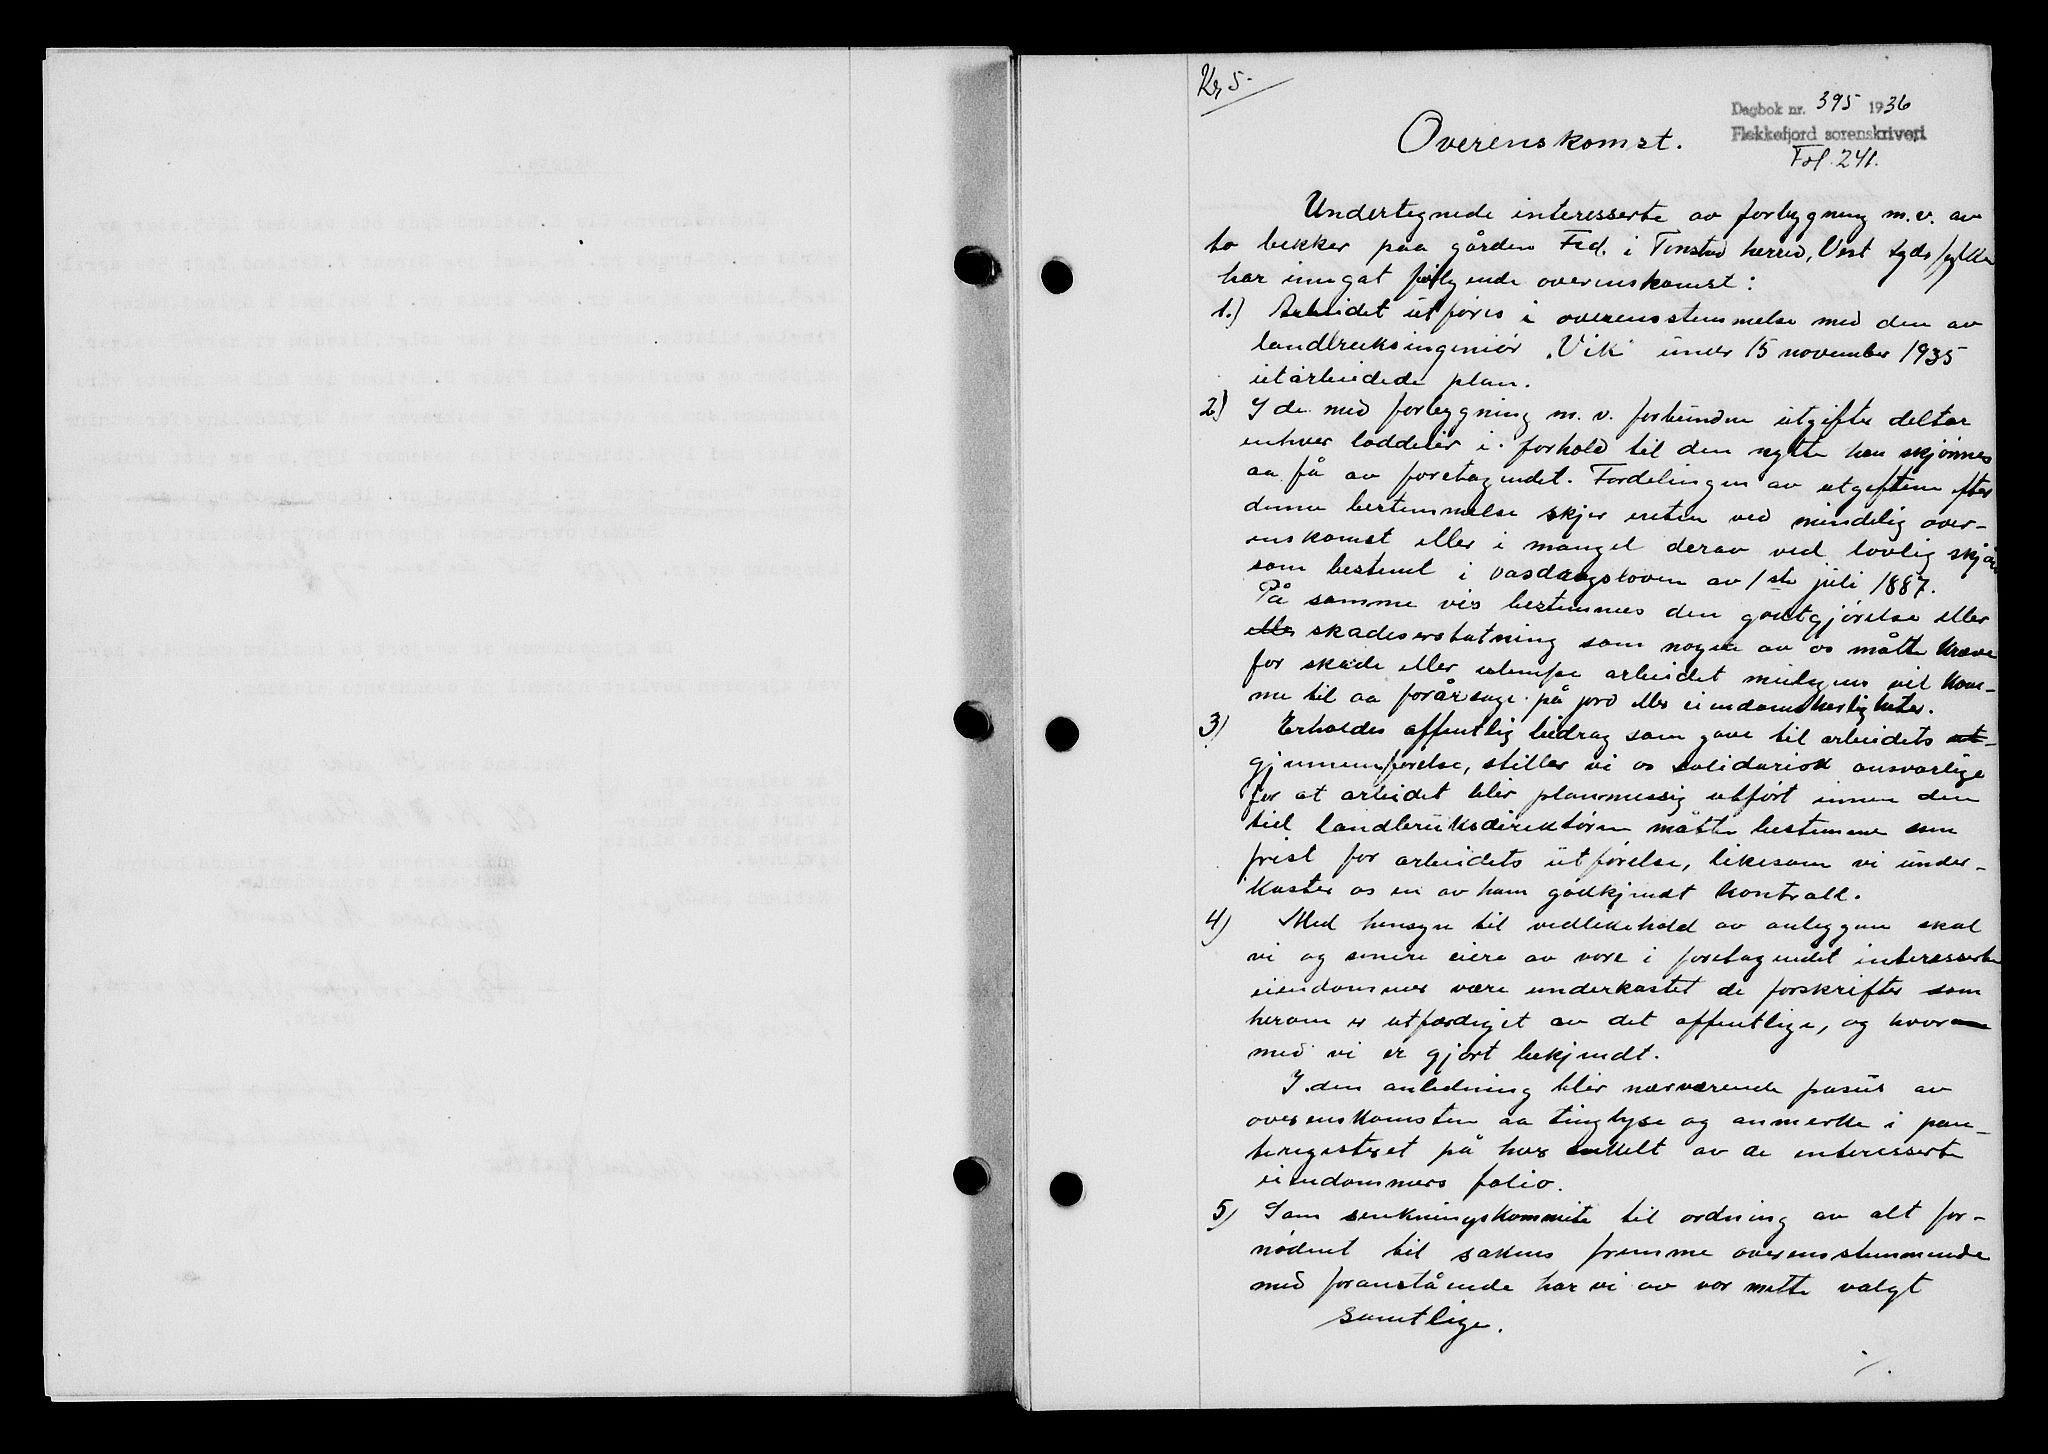 Kr 5-
Dagbok nr. 395 1936
Flekkefjord sorenskriveri
Fol. 241.
Overenskomst.
Undertegnede interesserte av forbygning m.v. av
to bekker paa gården Fed. i Tonstad herred, Vest Agds fylke
har inngat følgende overenskomst:
1.) Arbeidet utføres i overensstemmelse med den av
landbruksingeniør "Vik" under 15 november 1935
utarbeidede plan.
2) I de med forbygning m. v. forbundne utgifter deltar
enhver loddeier i forhold til den nytte han skjönnes
aa få av foretagendet. Fordelingen av utgiftene efter
denne bestemmelse skjer enten ved mindelig over-
enskomst eller i mangel derav ved lovlig skjön
som bestemt i vasdragsloven av 1ste juli 1887.
På samme vis bestemmes den godtgjörelse eller
eller skadeserstatning som nogen av os måtte kreve
for skade eller ulempe arbeidet muligens vil kom-
me til aa forårsage på jord eller eiendomsherligheter.
3) Erholdes offentlig bidrag som gave til arbeidets ut-
gjennemförelse, stiller vi os solidarisk ansvarlige
for at arbeidet blir planmessig utfört innen den
tid landbruksdirektören måtte bestemme som
frist for arbeidets utförelse, likesom vi under-
kaster os en av ham godkjendt kontroll.
4) Med hensyn til vedlikehold av anleggene skal
vi og senere eiere av vore i foretagendet interesserte
eiendommer være underkastet de forskrifter som
herom er utferdiget av det offentlige, og hvorom
med vi er gjort bekjendt.
I den anledning blir nærværende pasus av
overenskomsten aa tinglyse og anmerke i pan-
teregisteret på hver enkelt av de interesserte
eiendommers folio.
5) Som senkningskommite til ordning av alt for-
nødent til sakens fremme overensstemmende
med foranstående har vi av vor mitte valgt
samtlige.